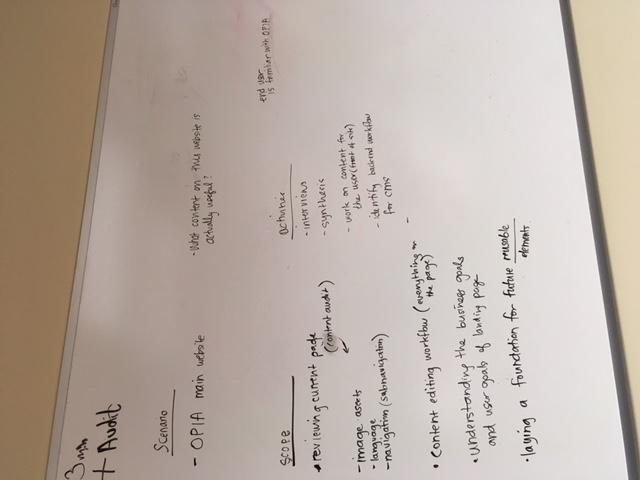 3 min
+ Audit
Scenario
- OPIA main website
- What content on this website is
actually useful?
end user
is familiar with OPIA
Scope
• reviewing current page
(content audit)
- image assets
- language
- navigation (subnavigation)
• Content editing workflow (everything on
the page)
• understanding the business goals
and user goals of landing page
• laying a foundation for future reusable
elements
activities
- interviews
- synthesis
- work on content for
the user (front of site)
- identify backend workflow
for CMS
-